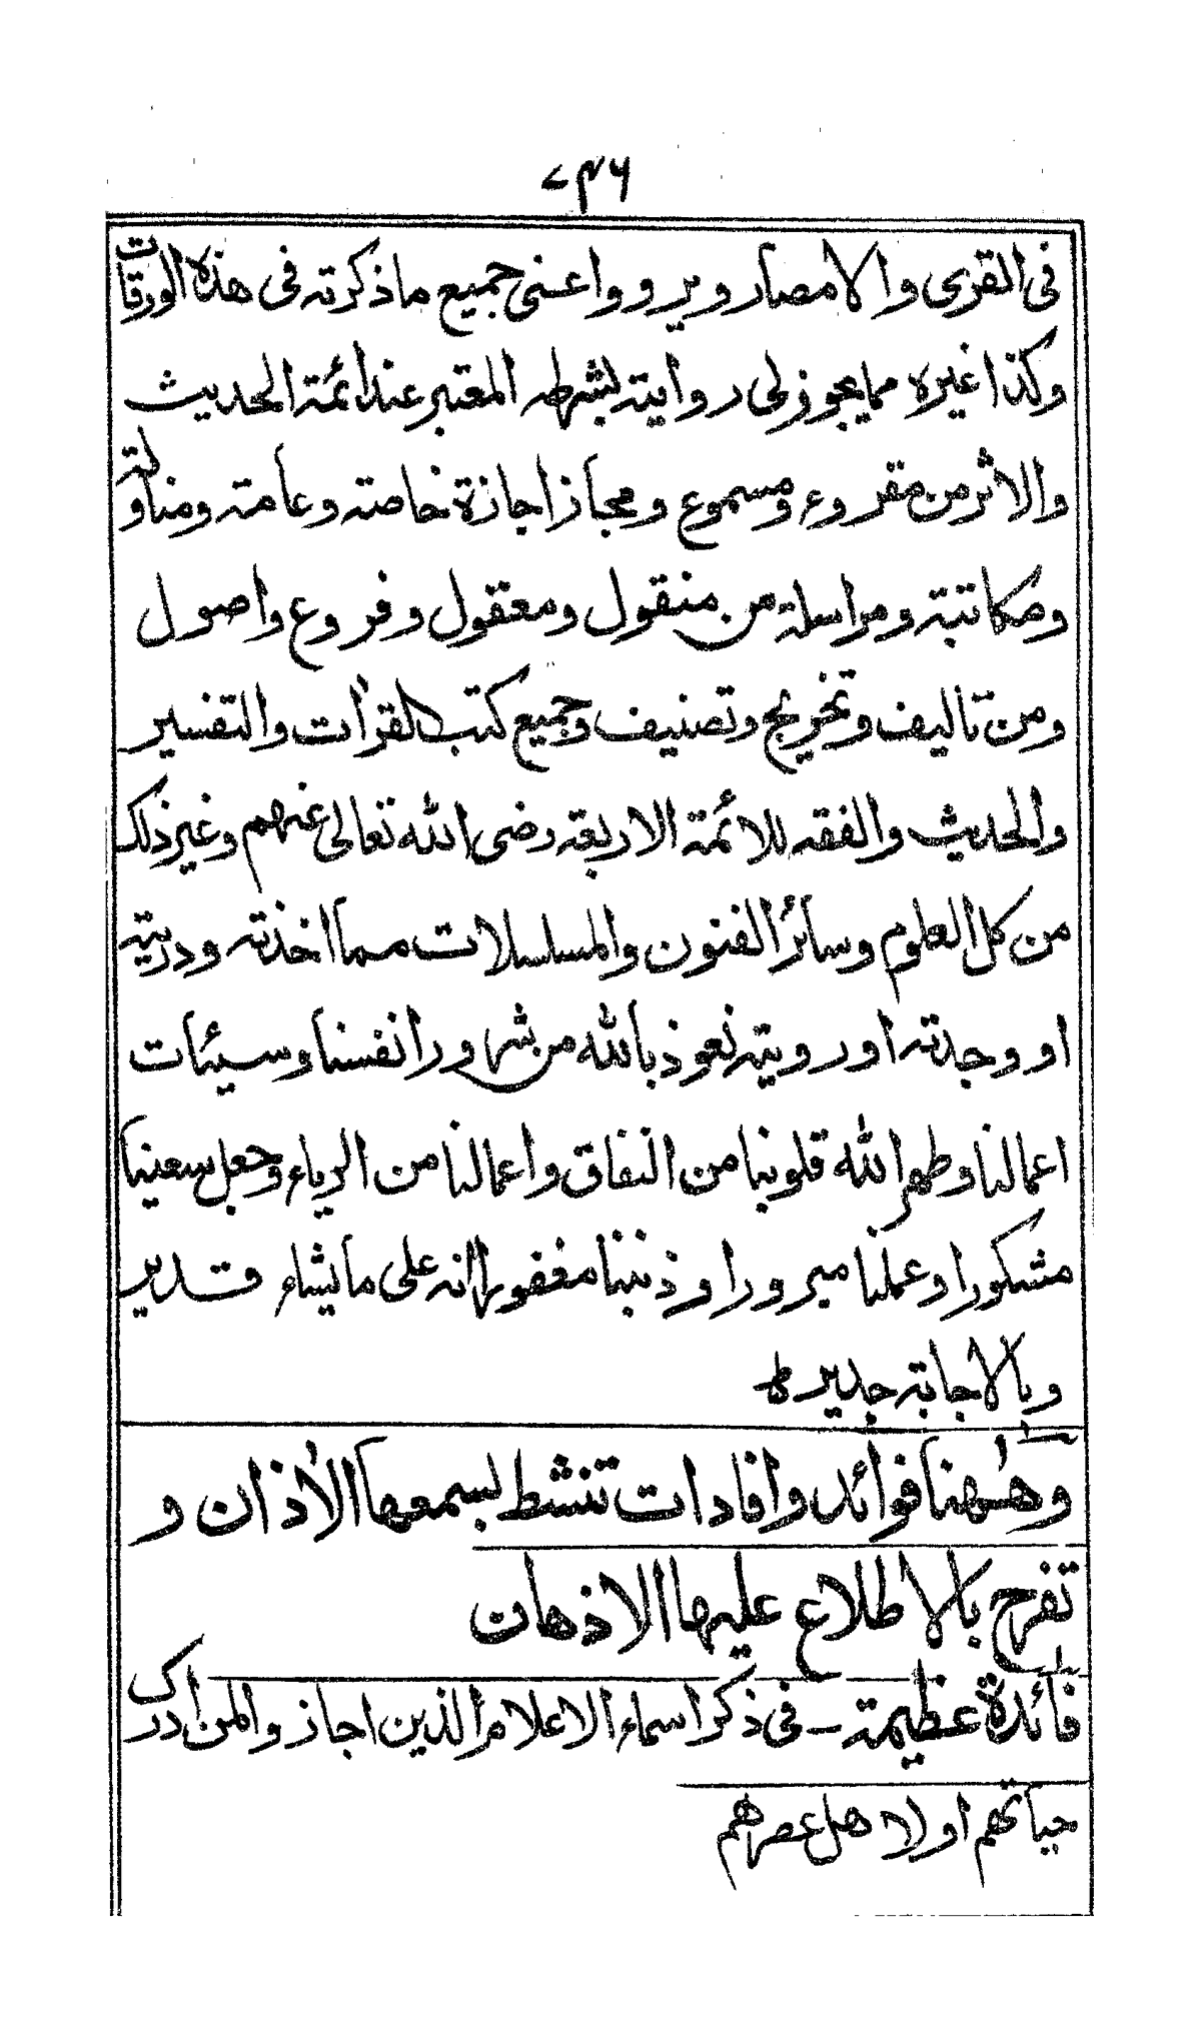 ۷۴۶
فى القرى والامصار ويرووا عنى جميع ما ذكرته فى هذه الورقات
وكذا غيره مما يجوز لى روايته بشرطه المعتبر عند ائمة الحديث
والاثر من مقروء ومسموع ومجاز اجازة خاصة وعامة ومناولة
ومكاتبة ومراسلة من منقول ومعقول وفروع واصول
ومن تاليف وتخريج وتصنيف وجميع كتب القرأت والتفسير
والحديث والفقه للائمة الاربعة رضى الله تعالى عنهم وغير ذلك
من كل العلوم وسائر الفنون والمسلسلات مما اخذته ودريته
او وجدته او رويته نعوذ بالله من شرور انفسنا وسيئات
اعمالنا وطهر الله قلوبنا من النفاق واعمالنا من الرياء وجعل سعينا
مشكورا وعملنا مبرورا وذنبنا مغفورا انه على ما يشاء قدير
وبالاجابة جدير ط
وههنا فوائد وافادات تنشط بسمعها الأذان و
تفرح بالاطلاع عليها الاذهان
فائدة عظيمة ــ فى ذكر اسماء الاعلام الذين اجازوا لمن ادرك
حياتهم او لاهل عصرهم